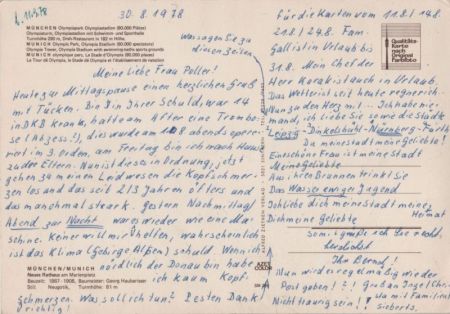 6. 11.9.78
30.8.1978
MÜNCHEN Olympiapark, Olympiastadion (80.000 Plätze)
Olympiaturm, Olympiastadion mit Schwimm- und Sporthalle
Turmhöhe 290 m, Dreh-Restaurant in 182 m Höhe
MUNICH Olympic Park, Olympic Stadium (80.000 spectators)
Olympic Tower, Olympia Stadium with swimming and sports grounds
MUNICH olympique parc, Le Stade de Olympia (80.000 spectateurs)
La Tour de Olympia, le Stade de Olympia et l'établissement de natation
Was sagen Sie zu
diesen Zeilen
Meine liebe Frau Poller!
Heute zur Mittagspause einen herzlichen Gruß
mit Tücken. Bin in Ihrer Schuld, war 14
in DKD krank, hatte am After eine Trombo-
se (Abszess!), dies wurde am 10.8 abends ope-
riert in 3. Orden, am Freitag bin ich nach Hause
zu den Eltern. Nun ist dieses in Ordnung, jetzt
gehen zu meinen Leidwesen die Kopfschmer-
zen los und das seit 2 1/2 Jahren öfters und
das manchmal stark. Gestern Nachmittag/
Abend zur Nacht war es wieder wie eine Ma-
schine. Keiner will mir helfen, wahrscheinlich
ist das Klima (Gebirge Alpen) schuld. Wenn ich
nördlich der Donau bin habe
ich kaum Kopf-
schmerzen. Was soll ich tun? Besten Dank
richtig!
MÜNCHEN/MUNICH
Neues Rathaus am Marienplatz
Bauzeit: 1867-1908, Baumeister: Georg Hauberisser
Stil: Neugotik, Turmhöhe: 81 m
AZET COLOR
Qualitäts-
Karte
nach
Original
Farbfoto
für die Karten vom 11.8/14.8.
21.8/24.8. Fam.
Gallist in Urlaub bis
31.8. Mein Chef der
Herr Korak ist auch in Urlaub.
Das Wetter ist seit heute regnerisch.
Nun zu den Herz mit... Ich habe nie-
mand, ich liebe Sie sowie die Städte
Leipzig - Dinkelsbühl - Nürnberg - Fürth.
Du meine Stadt meine Geliebte!
Eine schöne Frau ist meine Stadt
Meine Geliebte
Aus ihre Brunnen trinkt sie
Das Wasser ewiger Jugend
Ich liebe dich meine Stadt meine
Heimat
Dich meine Geliebte
Somit grüße ich Sie recht
herzlichst
Ihr Bernd!
Nun wird regelmäßig wieder
Post geben!?! Gruß an Ingel Chri-
sta mit Familie
Nicht traurig sein! Sieberts.